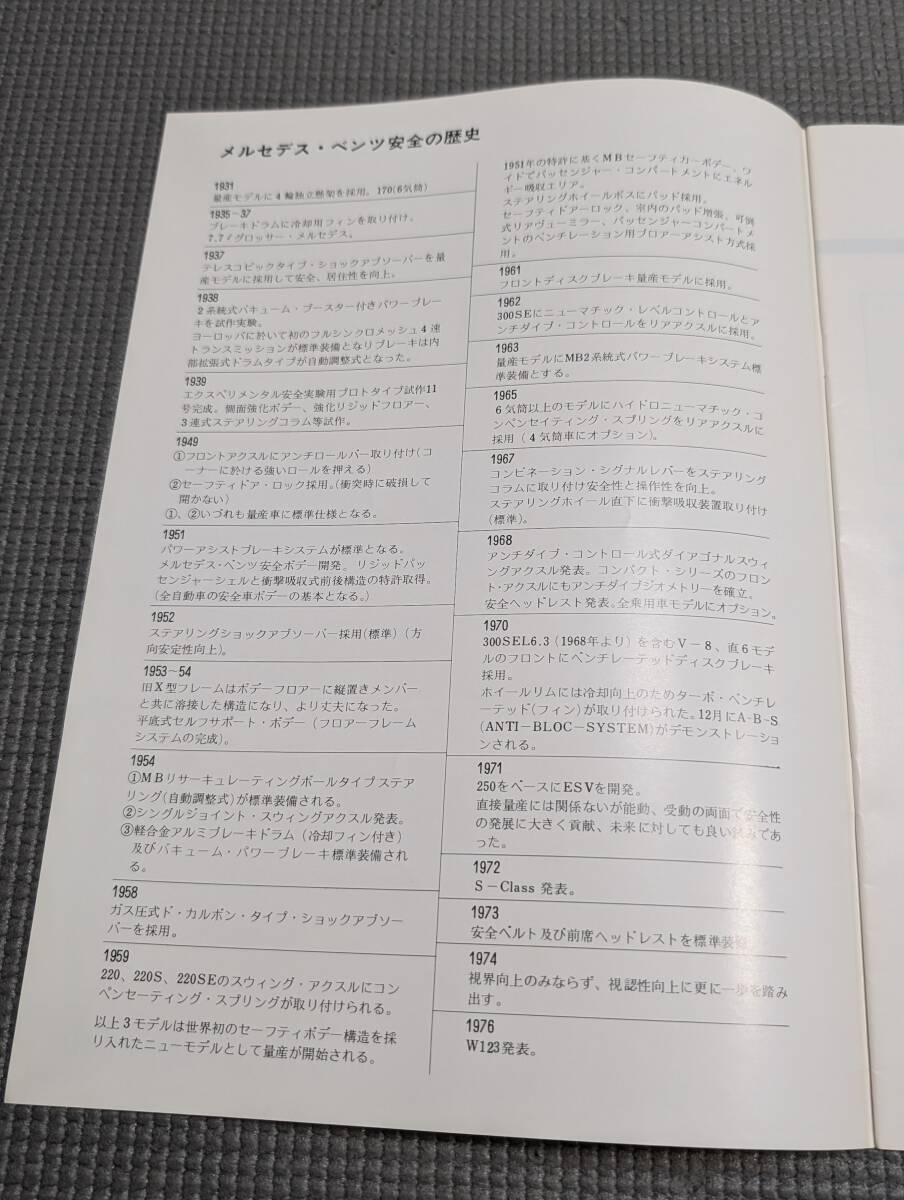 メルセデス・ベンツ安全の歴史
1931
量産モデルに4輪独立懸架を採用。170(6気筒)
1935~37
ブレーキドラムに冷却用フィンを取り付け。
7.7ℓグロッサー・メルセデス。
1937
テレスコピックタイプ・ショックアブソーバーを量
産モデルに採用して安全、居住性を向上。
1938
2系統式バキューム・ブースター付きパワーブレー
キを試作実験。
ヨーロッパに於いて初のフルシンクロメッシュ4速
トランスミッションが標準装備となりブレーキは内
部拡張式ドラムタイプが自動調整式となった。
1939
エクスペリメンタル安全実験用プロトタイプ試作11
号完成。側面強化ボデー、強化リジッドフロアー、
3連式ステアリングコラム等試作。
1949
①フロントアクスルにアンチロールバー取り付け(コ
ーナーに於ける強いロールを押える)
②セーフティドア・ロック採用。(衝突時に破損して
開かない)
①、②いづれも量産車に標準仕様となる。
1951
パワーアシストブレーキシステムが標準となる。
メルセデス・ベンツ安全ボデー開発。リジッドパッ
センジャーシェルと衝撃吸収式前後構造の特許取得。
(全自動車の安全車ボデーの基本となる。)
1952
ステアリングショックアブソーバー採用(標準)(方
向安定性向上)。
1953~54
旧X型フレームはボデーフロアーに縦置きメンバー
と共に溶接した構造になり、より丈夫になった。
平底式セルフサポート・ボデー(フロアーフレーム
システムの完成)。
1954
①MBリサーキュレーティングボールタイプステア
リング(自動調整式)が標準装備される。
②シングルジョイント・スウィングアクスル発表。
③軽合金アルミブレーキドラム(冷却フィン付き)
及びバキューム・パワーブレーキ標準装備され
る。
1958
ガス圧式ド・カルボン・タイプ・ショックアブソー
バーを採用。
1959
220、220S、220SEのスウィング・アクスルにコン
ペンセーティング・スプリングが取り付けられる。
以上3モデルは世界初のセーフティボデー構造を採
り入れたニューモデルとして量産が開始される。
1951年の特許に基くMBセーフティカーボデー、ワ
イドでパッセンジャー・コンパートメントにエネル
ギー吸収エリア。
ステアリングホイールボスにパッド採用。
セーフティドアーロック、室内のパッド増張、可倒
式リアヴューミラー、パッセンジャーコンパートメ
ントのベンチレーション用ブロアーアシスト方式採
用。
1961
フロントディスクブレーキ量産モデルに採用。
1962
300SEにニューマチック・レベルコントロールとア
ンチダイブ・コントロールをリアアクスルに採用。
1963
量産モデルにMB2系統式パワーブレーキシステム標
準装備とする。
1965
6気筒以上のモデルにハイドロニューマチック・コ
ンペンセイティング・スプリングをリアアクスルに
採用(4気筒車にオプション)。
1967
コンビネーション・シグナルレバーをステアリング
コラムに取り付け安全性と操作性を向上。
ステアリングホイール直下に衝撃吸収装置取り付け
(標準)。
1968
アンチダイブ・コントロール式ダイアゴナルスウィ
ングアクスル発表。コンパクト・シリーズのフロン
ト・アクスルにもアンチダイブジオメトリーを確立。
安全ヘッドレスト発表。全乗用車モデルにオプション。
1970
300SEL6.3(1968年より)を含むV-8、直6モデ
ルのフロントにベンチレーテッドディスクブレーキ
採用。
ホイールリムには冷却向上のためターボ・ベンチレ
ーテッド(フィン)が取り付けられた。12月にA-B-S
(ANTI-BLOC-SYSTEM)がデモンストレーショ
ンされる。
1971
250をベースにESVを開発。
直接量産には関係ないが能動、受動の両面で安全性
の発展に大きく貢献、未来に対しても良い試みであ
った。
1972
S-Class発表。
1973
安全ベルト及び前席ヘッドレストを標準装備。
1974
視界向上のみならず、視認性向上に更に一歩を踏み
出す。
1976
W123発表。